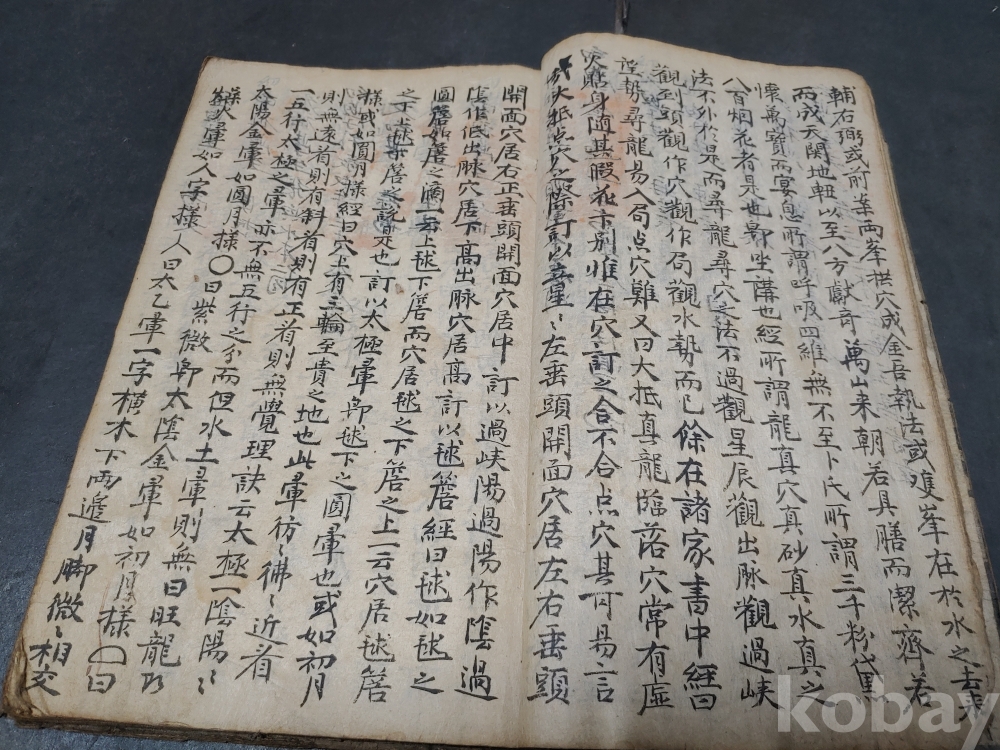 輔右弼或前峯兩峯拱穴成金吾執法或雙峯在於水之去來
而成天関地軸以至八方獻奇萬山来朝若具膳而潔齊若
懷萬寶而宴息所謂呼吸四維無不至卜氏所謂三千粉黛
八百烟花者是也鄭坐講也經所謂龍真穴真砂真水真之
法不外於是而尋龍尋穴之法不過觀星辰觀出脉觀過峽
觀到頭觀作穴觀作局觀水勢而已餘在諸家書中經曰
望勢尋龍易入局点穴難又曰大抵真龍臨落穴常有虛
穴貼身隨其假花卞別惟在穴訂之合不合点穴其可易言
哉大抵点穴之際訂以五星〻左垂頭開面穴居左右垂頭
開面穴居右正垂頭開面穴居中訂以過峽陽過陽作陰過
陰作低出脉穴居下高出脉穴居高訂以毬簷經曰毬如毬之
圓簷如簷之滴一云上毬下簷而穴居毬之下簷之上一云穴居毬簷
之下毬簷之說是也訂以太極暈即毬下之圓暈也或如初月
様或如圓月様經曰穴上有三輪至貴之地也此暈彷〻彿〻近着
則無遠着則有斜着則有正着則無覺理訣云太極一陰陽〻
一五行太極之暈亦不無五行之分而但水土暈則無曰旺龍
太陽金暈如圓月様〇曰紫微即太陰金暈如初月様曰
火暈如人字様人曰太乙暈一字橫木下兩邊月脚微〻相交